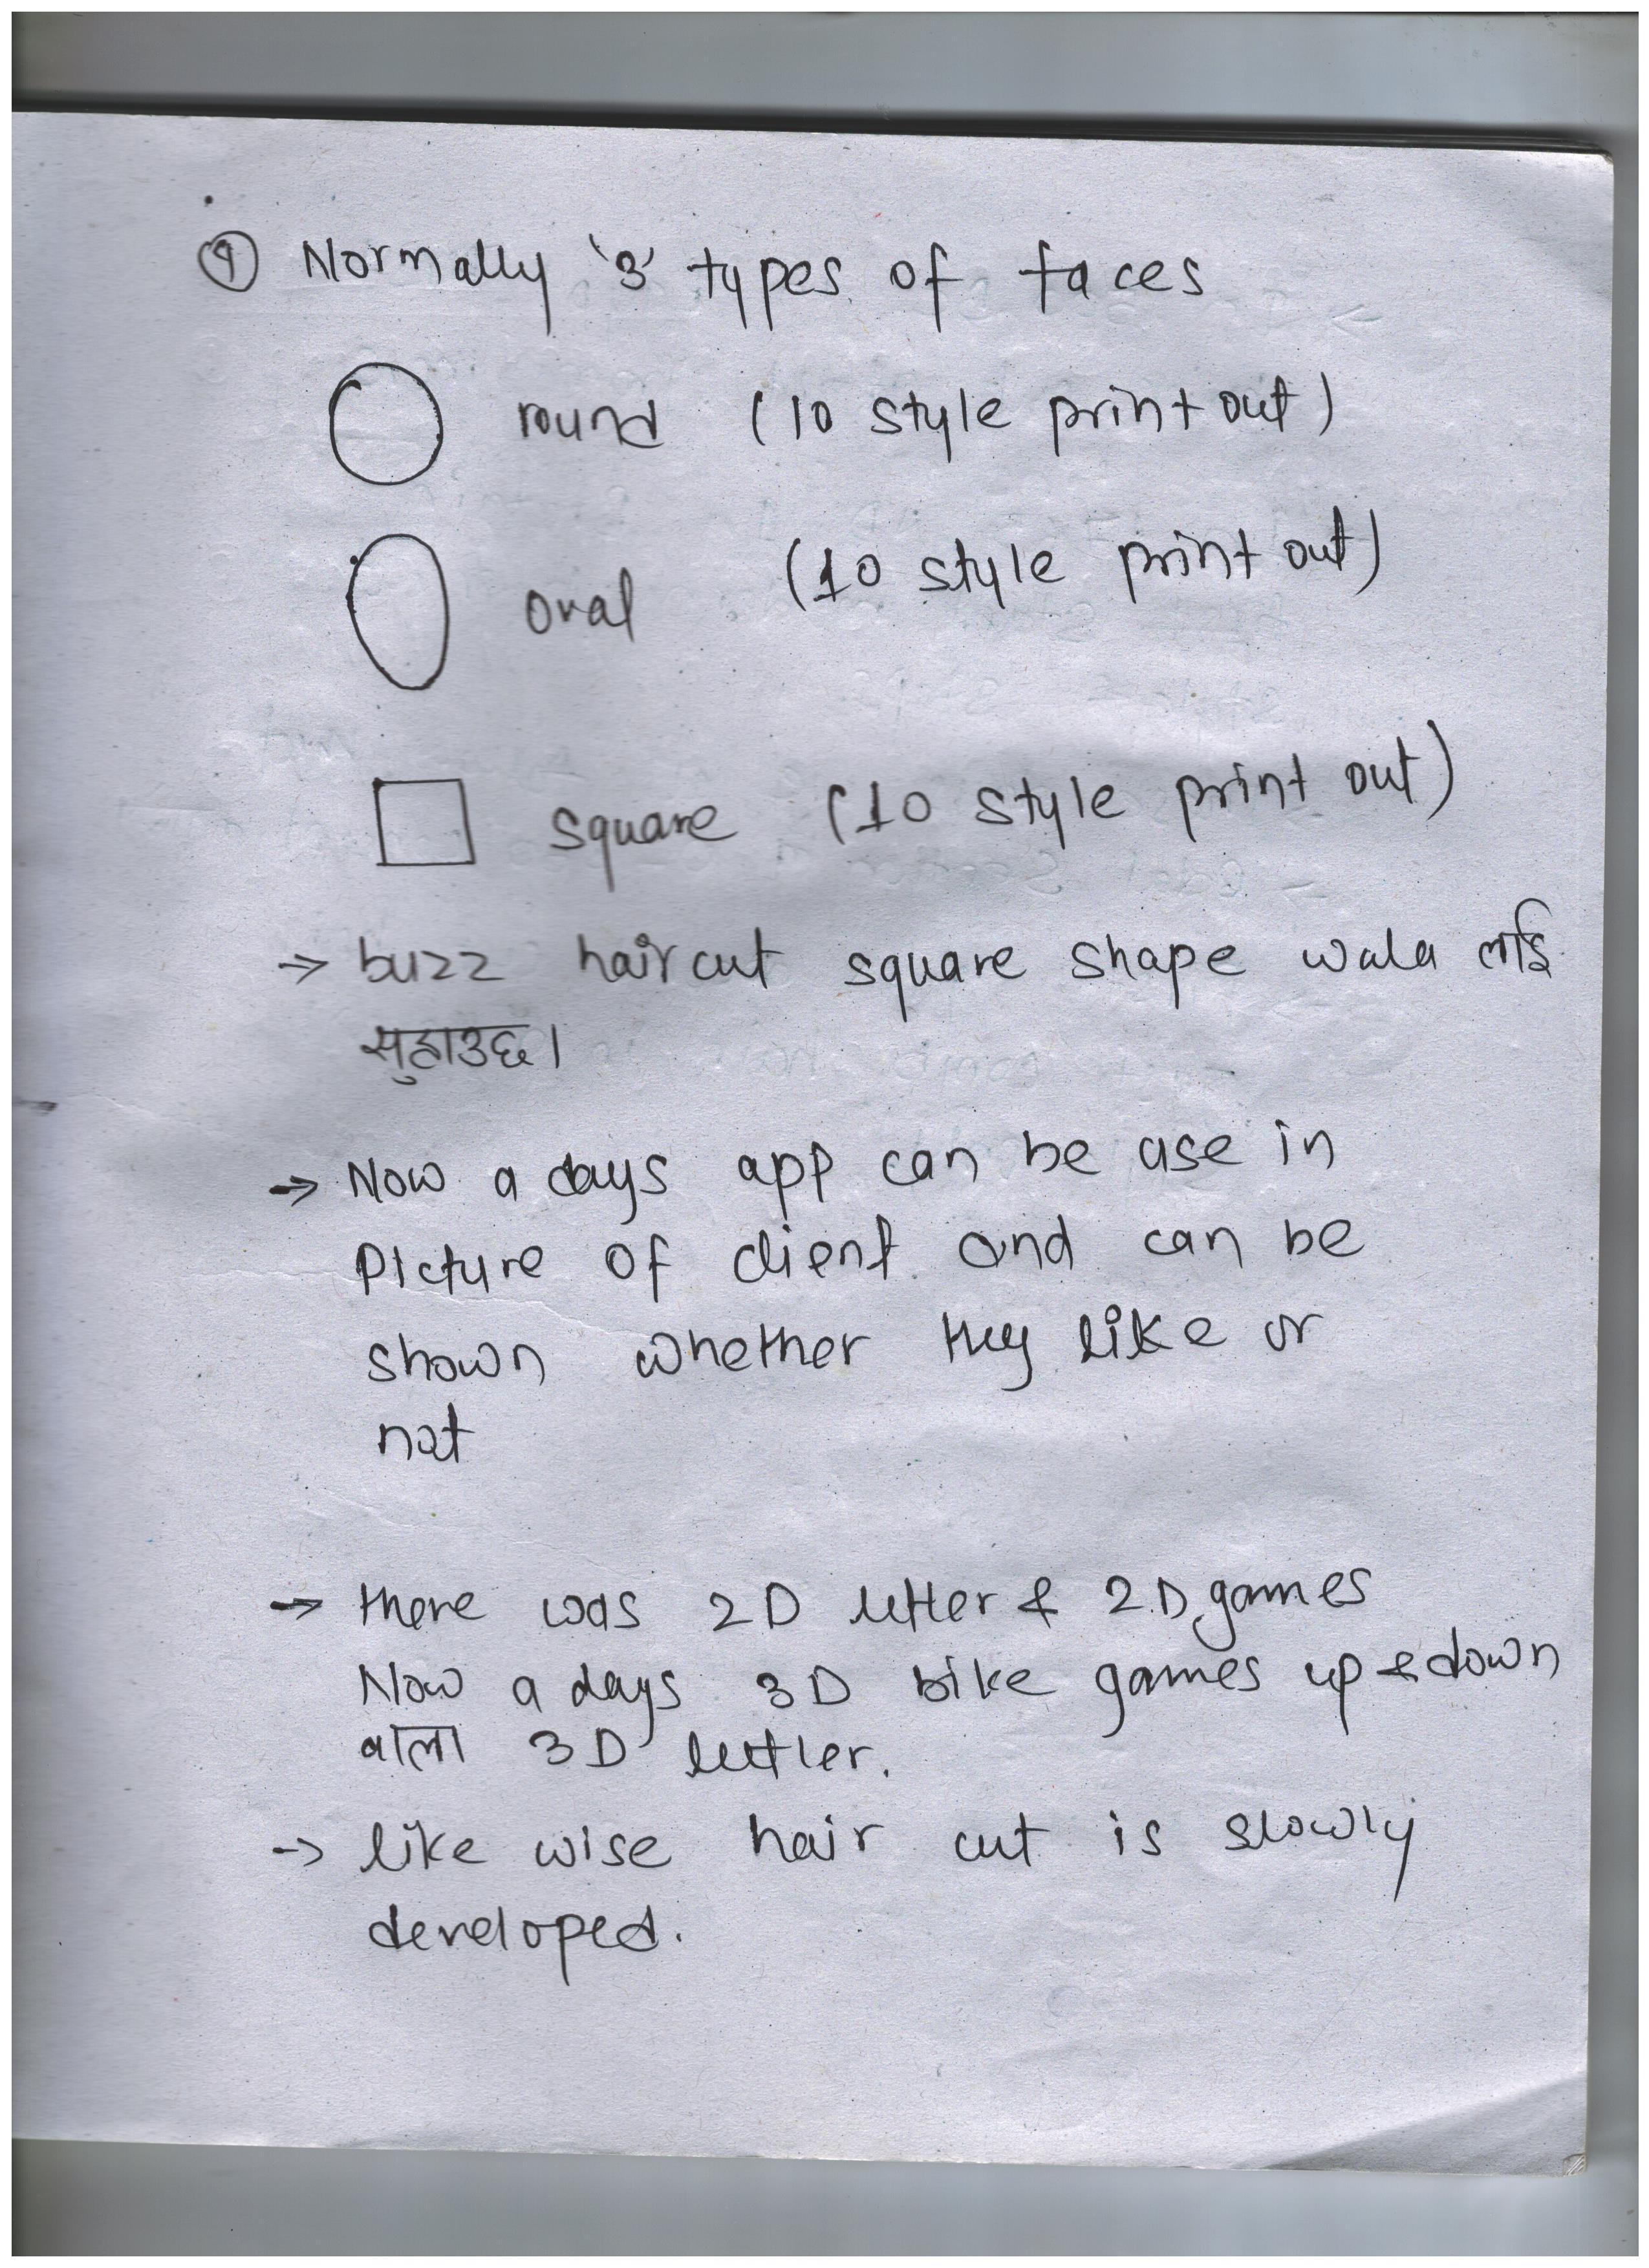 ९ Normally '3' types of faces
round (10 style print out)
oval (10 style print out)
square (10 style print out)
→ buzz hair cut square shape wala लाई
सुहाउछ।
→ Now a days app can be use in
Picture of client and can be
shown whether they like or
not
→ there was 2D letter & 2.D games
Now a days 3D bike games up & down
वाला 3D letter.
→ like wise hair cut is slowly
developed.